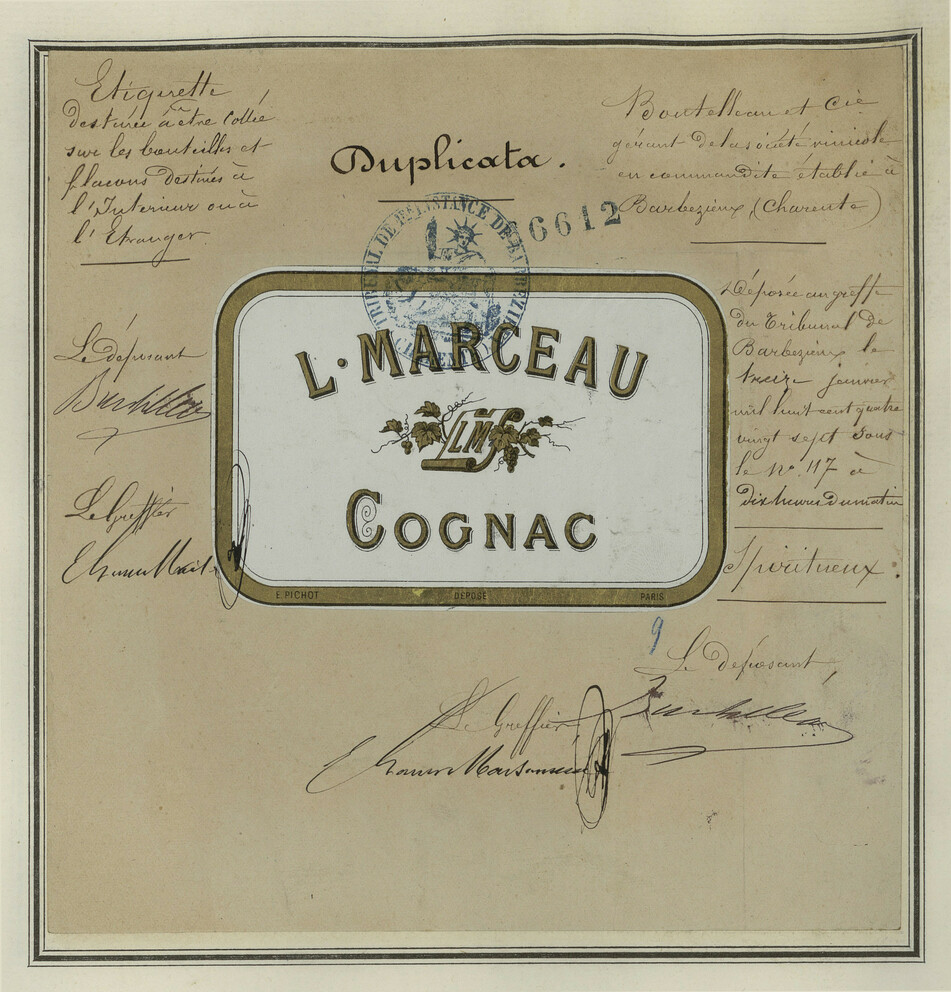 Etiquette
destinée à être collée
sur les bouteilles et
flacons destinés à
l'Intérieur ou à
l'Etranger
Duplicata.
Boutelleau et Cie
gérant de la société vinicole
en commandite établie à
Barbezieux, (Charente)
6612
TRIBUNAL DE 1RE INSTANCE DE BARBEZIEUX
L. MARCEAU
LM
COGNAC
E. PICHOT
DÉPOSÉ
PARIS
Le déposant
Boutelleau
Le Greffier
Déposée au greffe
du Tribunal de
Barbezieux le
treize janvier
mil huit cent quatre
vingt sept sous
le No. 117 à
dix heures du matin
Spiritueux.
9
Le déposant,
Boutelleau
Le Greffier